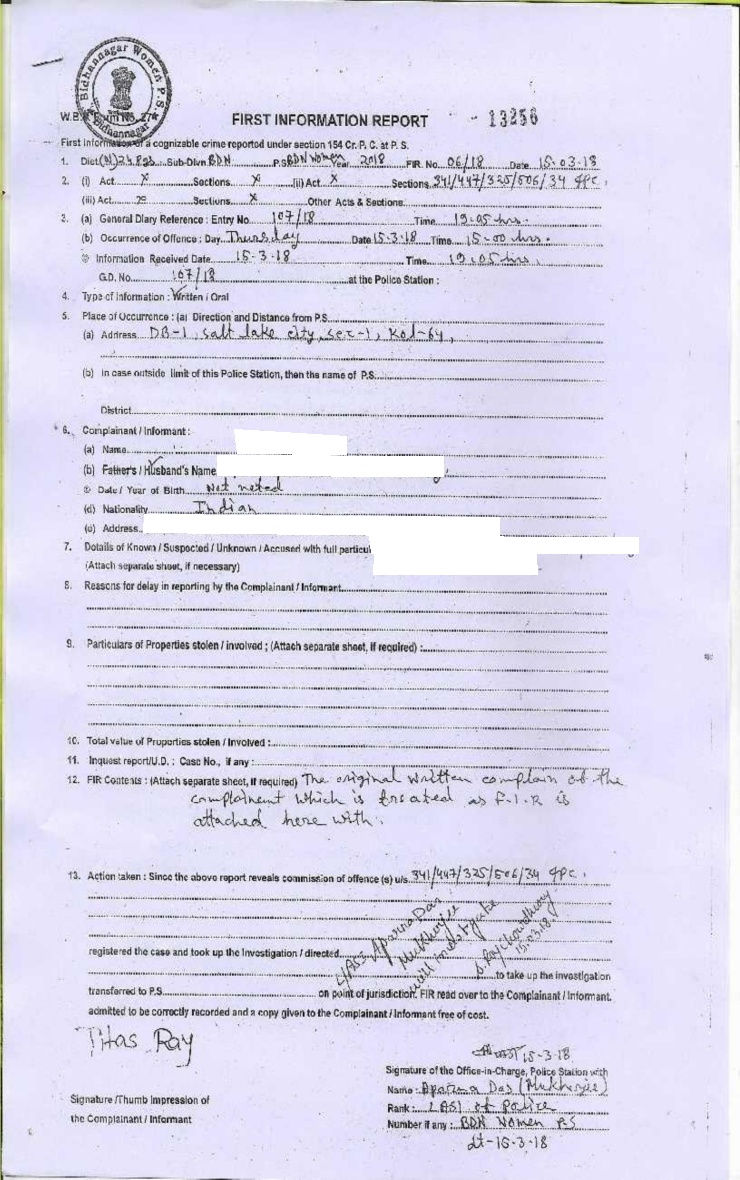 Bidhannagar Women P.S.
Bidhannagar
W.B. Form No. 27
FIRST INFORMATION REPORT
- 13256
First Information of a cognizable crime reported under section 154 Cr. P. C. at P. S.
1. Dist (N) 24 Pgs Sub-Divn BDN P.S BDN Women Year 2018 FIR. No. 06/18 Date 15-03-18
2. (i) Act X Sections X (ii) Act X Sections 341/447/325/506/34 IPC.
(iii) Act X Sections X Other Acts & Sections
3. (a) General Diary Reference : Entry No 107/18 Time 19.05 hrs.
(b) Occurrence of Offence : Day Thursday Date 15-3-18 Time 15-00 hrs.
© Information Received Date 15-3-18 Time 19.05 hrs.
G.D. No 107/18 at the Police Station :
4. Type of Information : Written / Oral
5. Place of Occurrence : (a) Direction and Distance from P.S
(a) Address DB-1, salt lake city, sec-1, Kol-64,
(b) In case outside limit of this Police Station, then the name of P.S
District
6. Complainant / Informant :
(a) Name
(b) Father's / Husband's Name
© Date / Year of Birth Not noted
(d) Nationality Indian
(e) Address
7. Details of Known / Suspected / Unknown / Accused with full particul
(Attach separate sheet, if necessary)
8. Reasons for delay in reporting by the Complainant / Informant
9. Particulars of Properties stolen / involved ; (Attach separate sheet, if required) :
10. Total value of Properties stolen / Involved :
11. Inquest report/U.D. : Case No., if any :
12. FIR Contents : (Attach separate sheet, if required) The original written complain of the
complainent which is treated as F.I.R is
attached here with.
13. Action taken : Since the above report reveals commission of offence (s) u/s 341/447/325/506/34 IPC.
registered the case and took up the Investigation / directed
L/ASI Aparna Das
Mukherjee
will investigate
S. Raychowdhury
15.03.18
to take up the investigation
transferred to P.S on point of jurisdiction. FIR read over to the Complainant / Informant,
admitted to be correctly recorded and a copy given to the Complainant / Informant free of cost.
Titas Ray
15-3-18
Signature of the Office-in-Charge, Police Station with
Name : Aparna Das (Mukherjee)
Signature /Thumb Impression of
Rank : LASI of Police
the Complainant / Informant
Number if any : BDN Women P.S
dt-15-3-18